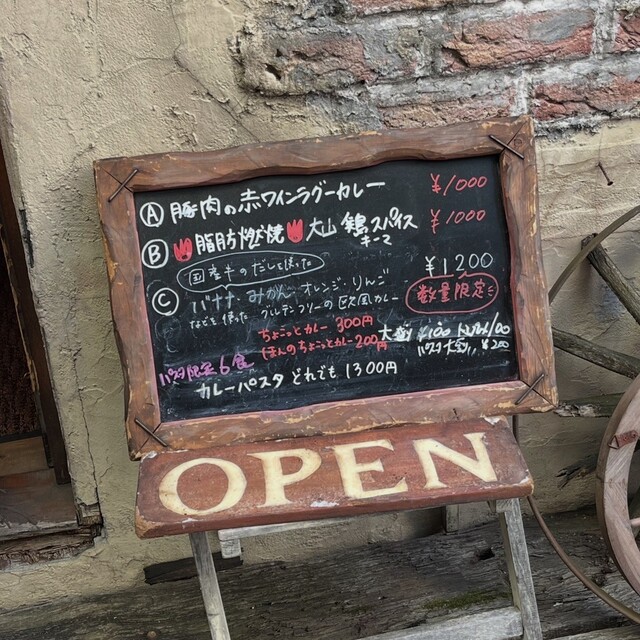 Ⓐ 豚肉の赤ワインラグーカレー ¥1000
Ⓑ 脂肪燃焼 大山鶏スパイスキーマ ¥1000
国産牛のだしを使った
Ⓒ バナナ・みかん オレンジ・りんご ¥1200
などを使った グルテンフリーの欧風カレー 数量限定
ちょこっとカレー 300円
ほんのちょこっとカレー 200円
大盛り
パスタ大盛り ¥200
パスタ限定6食
カレーパスタ どれでも 1300円
OPEN